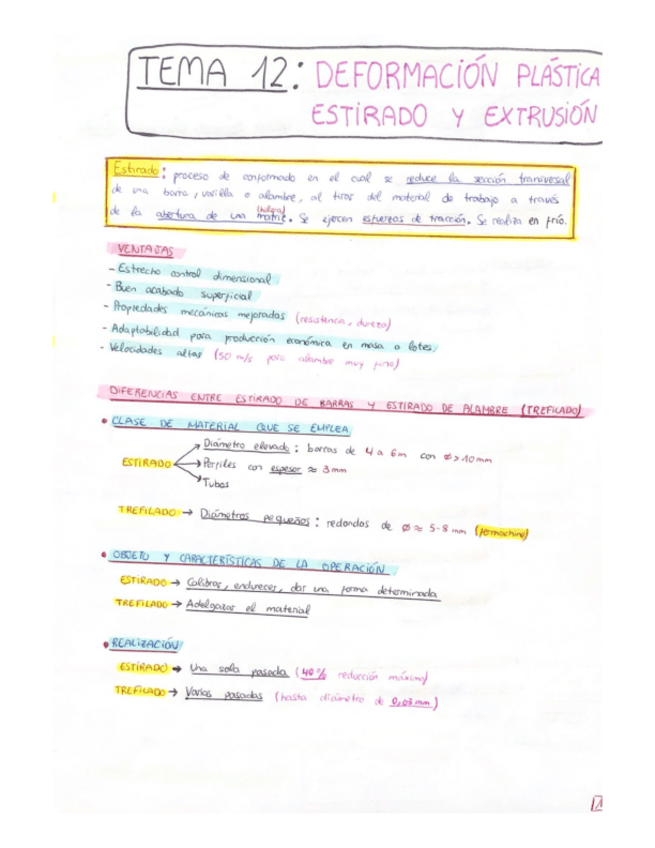 TEMA 12: DEFORMACIÓN PLÁSTICA
ESTIRADO Y EXTRUSIÓN
Estirado: proceso de conformado en el cual se reduce la sección transversal
de una barra, varilla o alambre, al tirar del material de trabajo a través
de la abertura de una matriz (hilera). Se ejercen esfuerzos de tracción. Se realiza en frío.
VENTAJAS
- Estrecho control dimensional
- Buen acabado superficial
- Propiedades mecánicas mejoradas (resistencia, dureza)
- Adaptabilidad para producción económica en masa o lotes.
- Velocidades altas (50 m/s para alambre muy fino)
DIFERENCIAS ENTRE ESTIRADO DE BARRAS Y ESTIRADO DE ALAMBRE (TREFILADO)
• CLASE DE MATERIAL QUE SE EMPLEA
→ Diámetro elevado: barras de 4 a 6m con Ø>10mm
ESTIRADO → Perfiles con espesor ≈ 3mm
→ Tubos
TREFILADO → Diámetros pequeños: redondos de Ø ≈ 5-8 mm (fermachine)
• OBJETO Y CARACTERÍSTICAS DE LA OPERACIÓN
ESTIRADO → Calibrar, endurecer, dar una forma determinada
TREFILADO → Adelgazar el material
• REALIZACIÓN
ESTIRADO → Una sola pasada (40% reducción máximo)
TREFILADO → Varias pasadas (hasta diámetro de 0,03 mm)